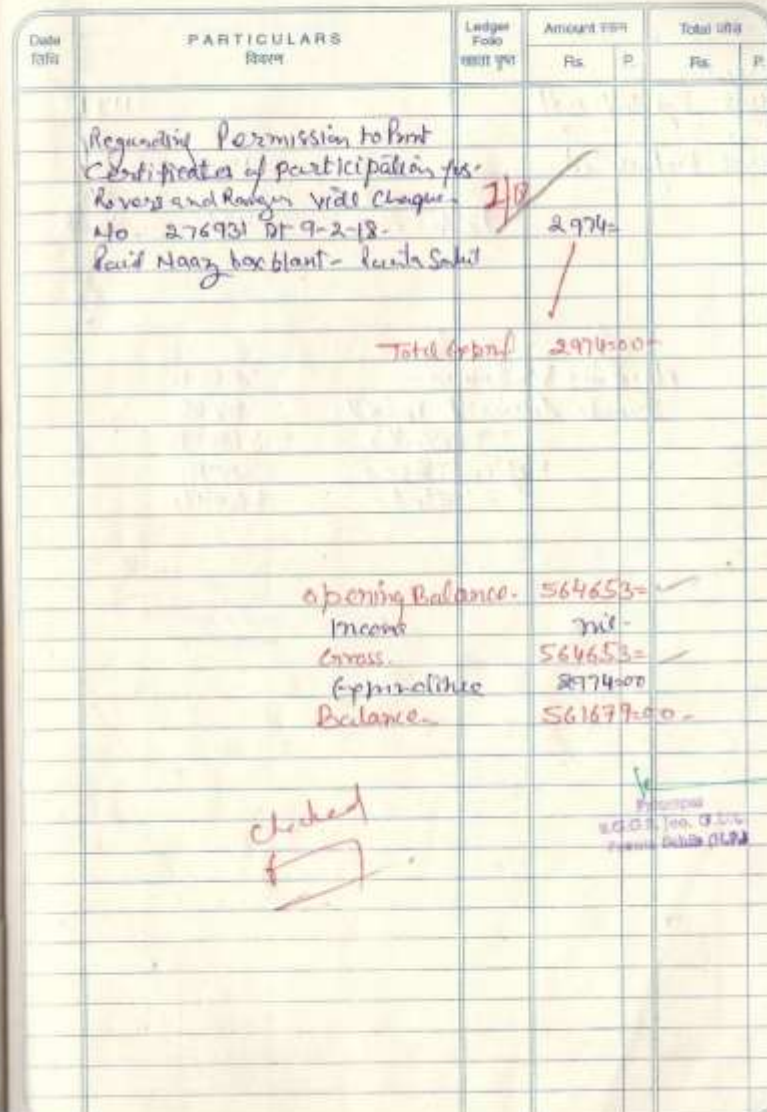 Date
तिथि
PARTICULARS
विवरण
Ledger
Folio
खाता पृष्ठ
Amount रकम
Rs. P.
Total जोड़
Rs. P.
Regarding Permission to Print
Certificates of participation for
Rovers and Rangers vide Cheque
No 276931 Dt 9-2-18.
2974=
Paid Naaz box plant - Paonta Sahib
Total Expnd 2974=00
Opening Balance. 564653=
Income nil-
Gross. 564653=
Expenditure 2974=00
Balance 561679=00-
checked
Principal
Paonta Sahib (H.P.)